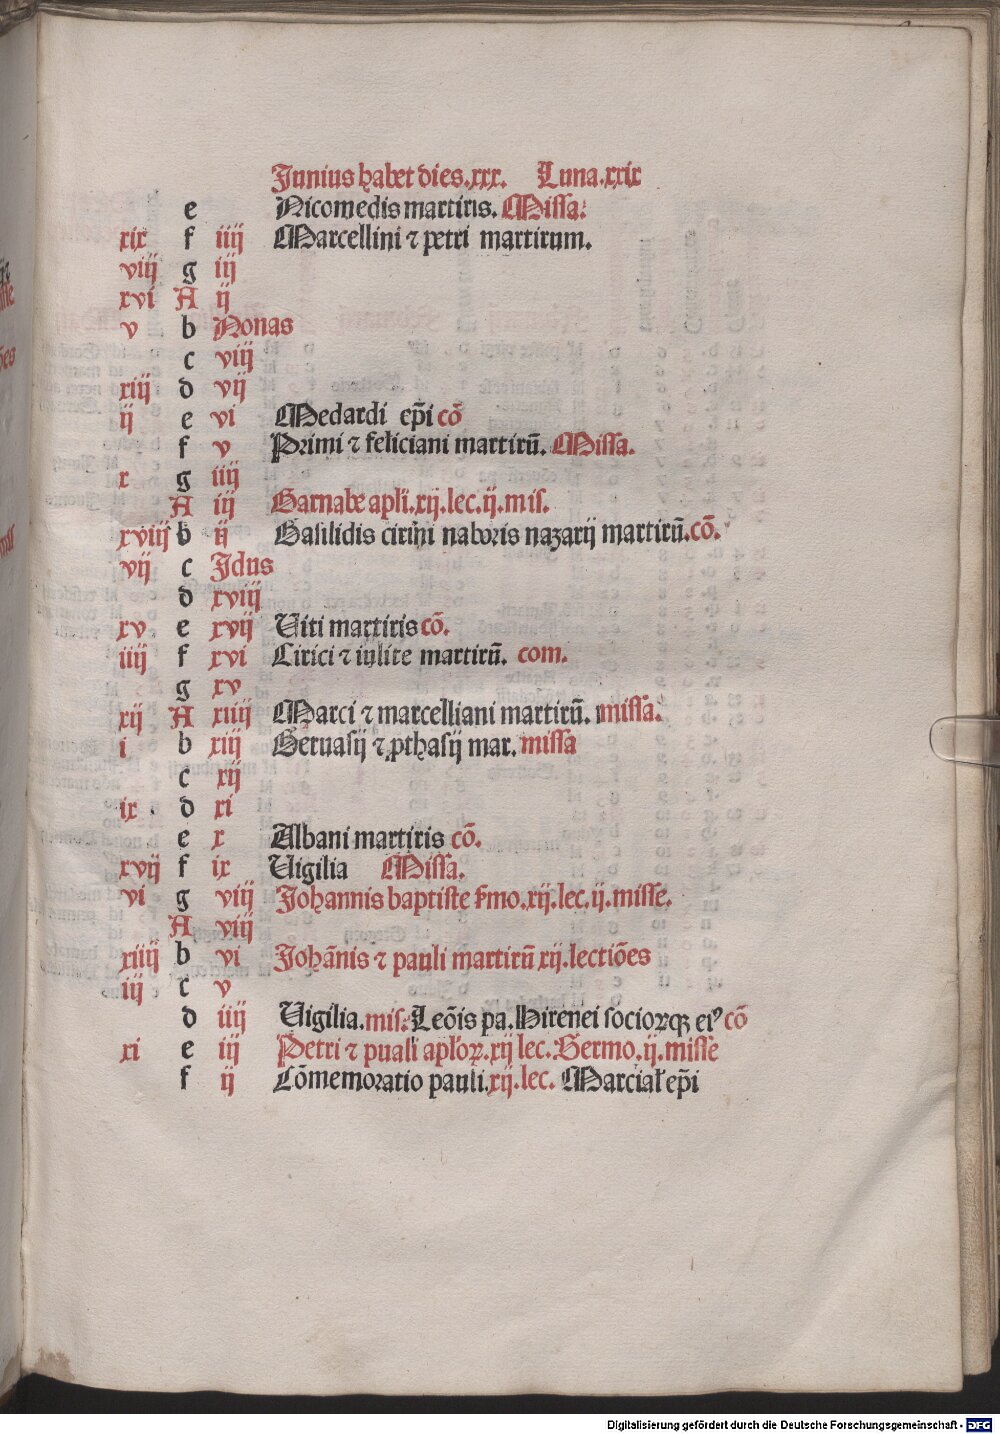 Junius habet dies.xxx. Luna.xxix
e Nicomedis martiris. Missa.
xix f iiij Marcellini ⁊ petri martirum.
viij g iij
xvi A ij
v b Nonas
c viij
xiij d vij
ij e vi Medardi ep̃i cõ
f v Primi ⁊ feliciani martirũ. Missa.
x g iiij
A iij Barnabe apl̃i.xij.lec.ij.mis.
xviij b ij Basilidis cirini naboris nazarij martirũ.cõ.
vij c Jdus
d xviij
xv e xvij Viti martiris cõ.
iiij f xvi Cirici ⁊ iulite martirũ. com.
g xv
xij A xiiij Marci ⁊ marcelliani martirũ. missa.
i b xiij Geruasij ⁊ ꝓthasij mar. missa
c xij
ix d xi
e x Albani martiris cõ.
xvij f ix Vigilia Missa.
vi g viij Johannis baptiste s̃mo.xij.lec.ij.misse.
A viij
xiiij b vi Johãnis ⁊ pauli martirũ xij.lectiões
iij c v
d iiij Vigilia.mis. Leõis pa. Hirenei sociorꝫqꝫ eiꝰ cõ
xi e iij Petri ⁊ puali apl̃oꝝ.xij lec. Sermo.ij.misse
f ij Cõmemoratio pauli.xij.lec. Marcial̃ ep̃i
Digitalisierung gefördert durch die Deutsche Forschungsgemeinschaft - DFG